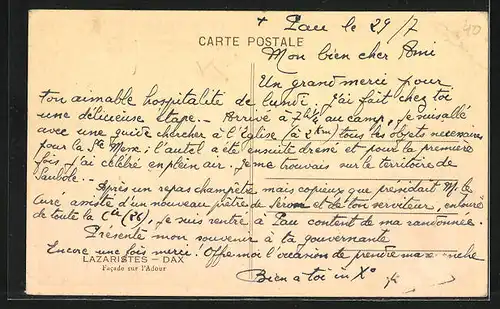 + Pau le 29/7
40
CARTE POSTALE
Mon bien cher Ami
Un grand merci pour
ton aimable hospitalité de lundi. J'ai fait chez toi
une délicieuse étape. - Arrivé à 7h ¼ au camp, je suis allé
avec une guide chercher à l'Eglise (à 2 km) tous les objets necessaires
pour la Ste Messe; l'autel a été ensuite dressé et pour la première
fois, j'ai célébré en plein air. Je me trouvais sur le territoire de
Saubole. -
Après un repas champêtre mais copieux que presidait Mr le
Curé assisté d'un nouveau prêtre de et de ton serviteur, entouré
de toute la Cie (26), je suis rentré à Pau content de ma randonnée.
Présente mon souvenir à ta gouvernante
Encore une fois merci! Offre-moi l'occasion de prendre ma revanche
LAZARISTES — DAX
Façade sur l'Adour
Bien à toi in Xo